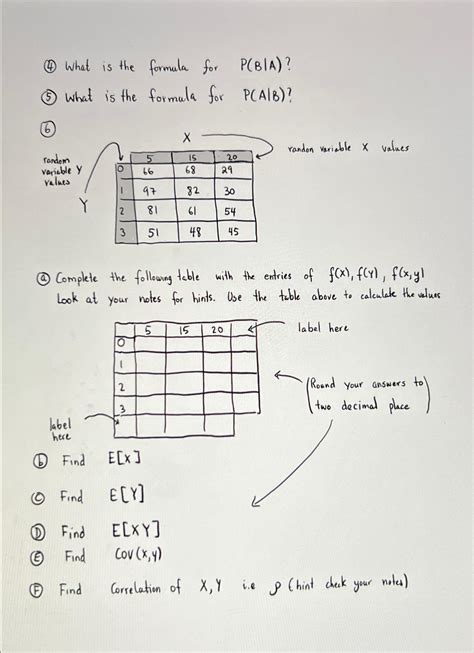 ④ What is the formula for P(B|A)?
⑤ What is the formula for P(A|B)?
⑥
X
random variable X values
random
variable Y
values
Y
5 15 20
0 66 68 29
1 97 82 30
2 81 61 54
3 51 48 45
ⓐ Complete the following table with the entries of f(X), f(Y), f(x,y)
Look at your notes for hints. Use the table above to calculate the values
5 15 20
label here
0
1
2
3
(Round your answers to
two decimal place)
label
here
ⓑ Find E[X]
ⓒ Find E[Y]
Ⓓ Find E[XY]
Ⓔ Find Cov(x,y)
Ⓕ Find Correlation of X,Y i.e ρ (hint check your notes)